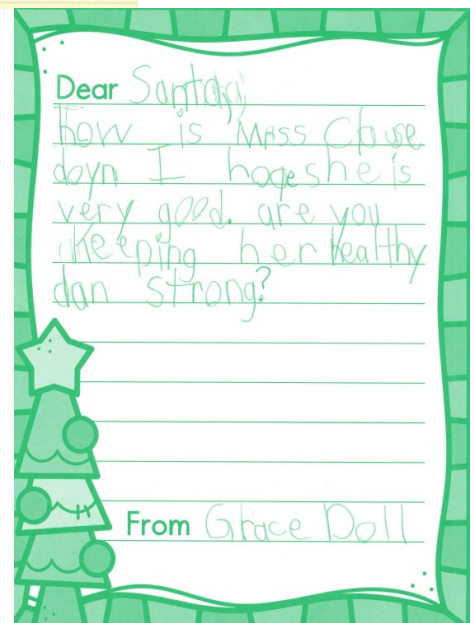 Dear Santa
how is Mrss Clause
doyn I hope she is
very good. are you
keeping her healthy
dan strong?
From Grace Doll